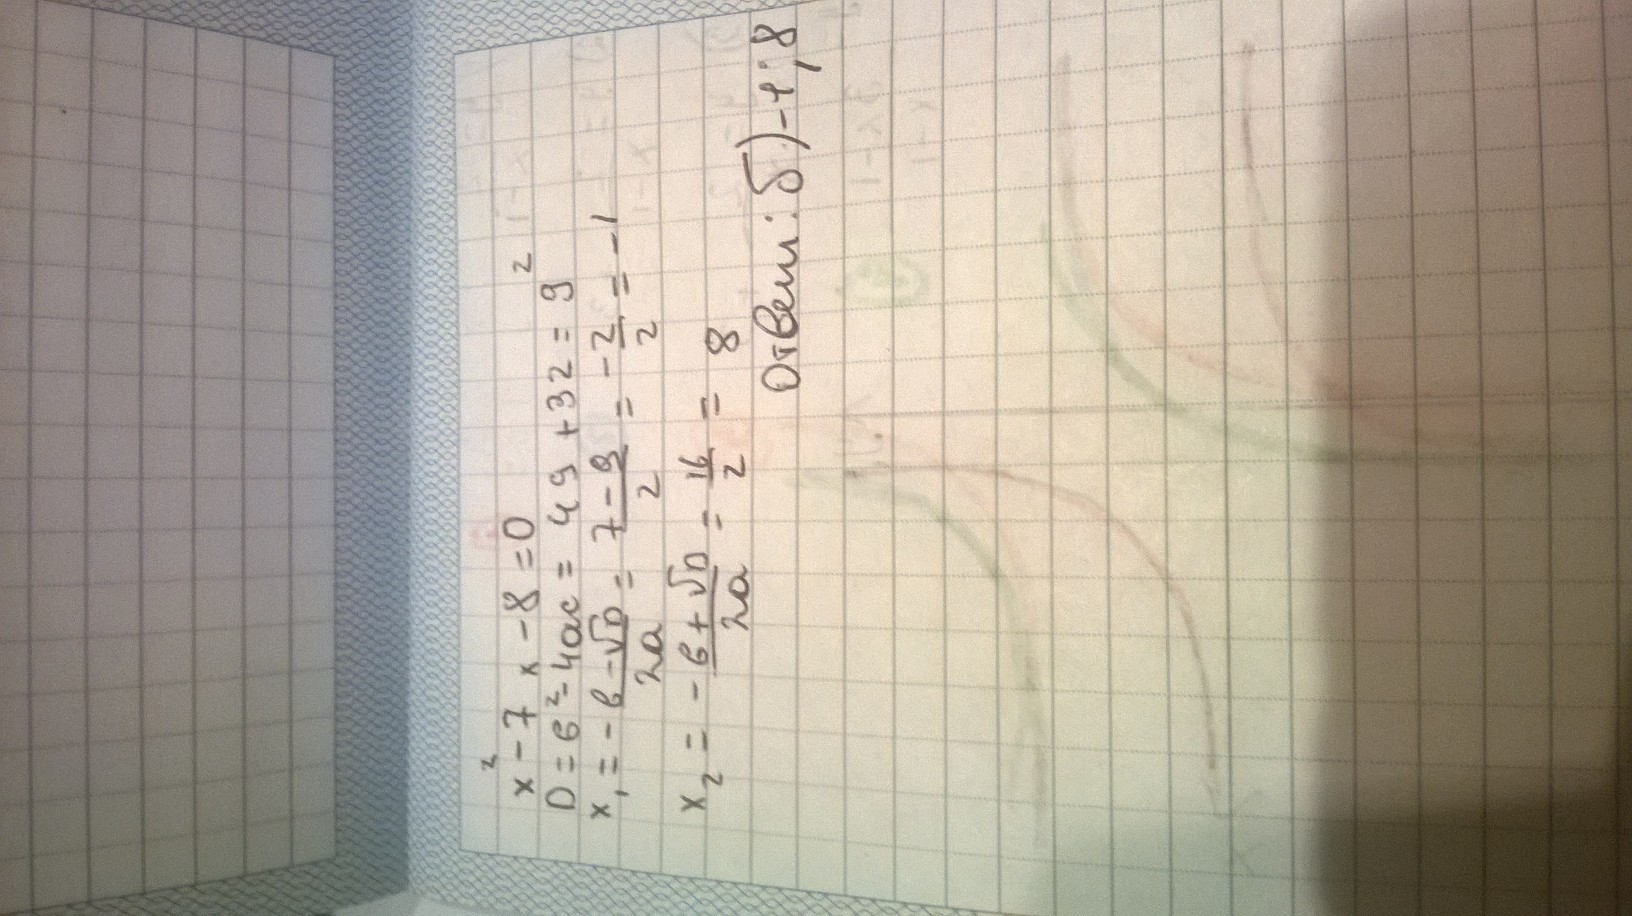 x² - 7x - 8 = 0
D = в² - 4ac = 49 + 32 = 9²
x₁ = -в-√D/2a = 7-9/2 = -2/2 = -1
x₂ = -в+√D/2a = 16/2 = 8
Ответ: б) -1; 8